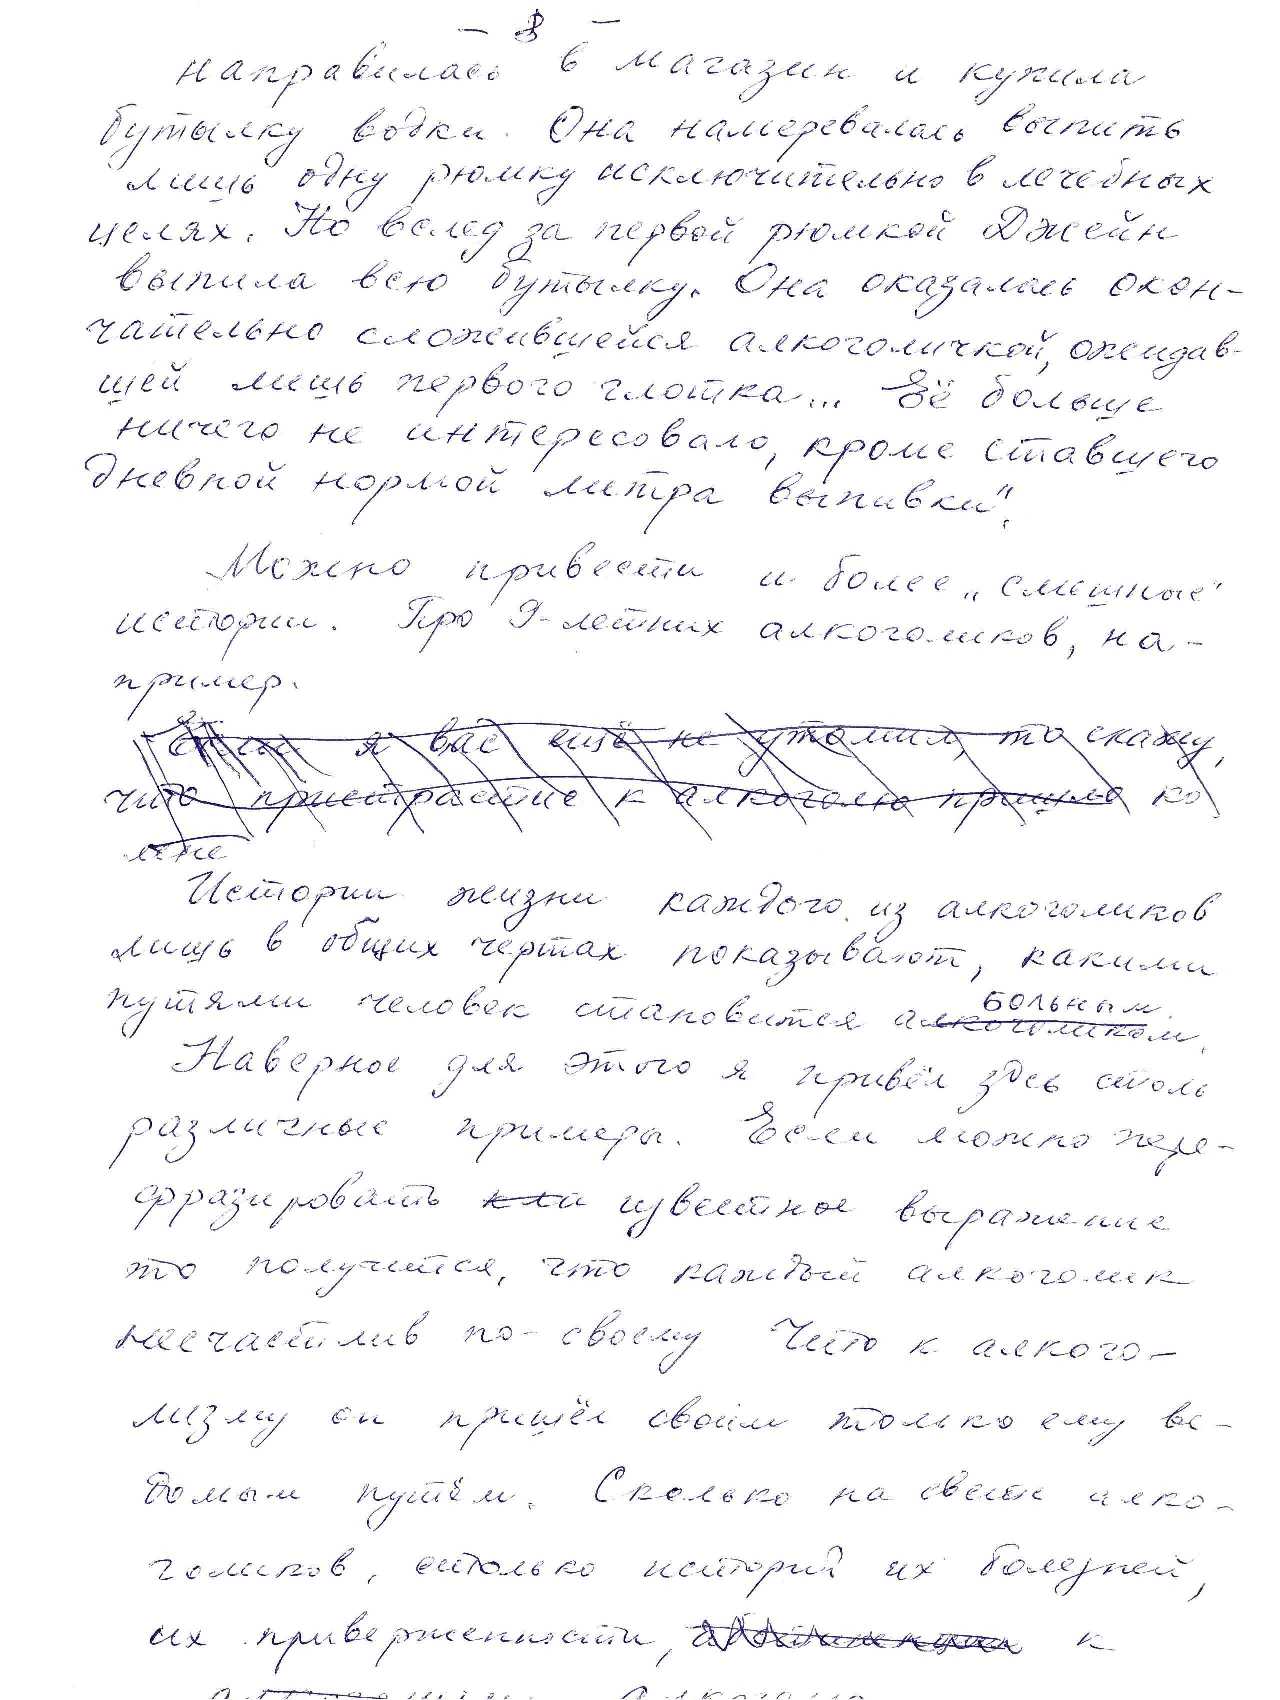 - 8 -
направилась в магазин и купила
бутылку водки. Она намеревалась выпить
лишь одну рюмку исключительно в лечебных
целях. Но вслед за первой рюмкой Джейн
выпила всю бутылку. Она оказалась окон-
чательно сложившейся алкоголичкой, ожидав-
шей лишь первого глотка... Её больше
ничего не интересовало, кроме ставшего
дневной нормой литра выпивки".
Можно привести и более „смешные"
истории. Про 9-летних алкоголиков, на-
пример.
Если я вас ещё не утомил, то скажу,
что пристрастие к алкоголю пришло ко
мне
Истории жизни каждого из алкоголиков
лишь в общих чертах показывают, какими
больным
путями человек становится алкоголиком.
Наверное для этого я привёл здесь столь
различные примеры. Если можно пере-
фразировать кла известное выражение
то получится, что каждый алкоголик
несчастлив по-своему Что к алкого-
лизму он пришёл своим только ему ве-
домым путём. Сколько на свете алко-
голиков, столько историй их болезней,
их приверженности, к
алкоголю